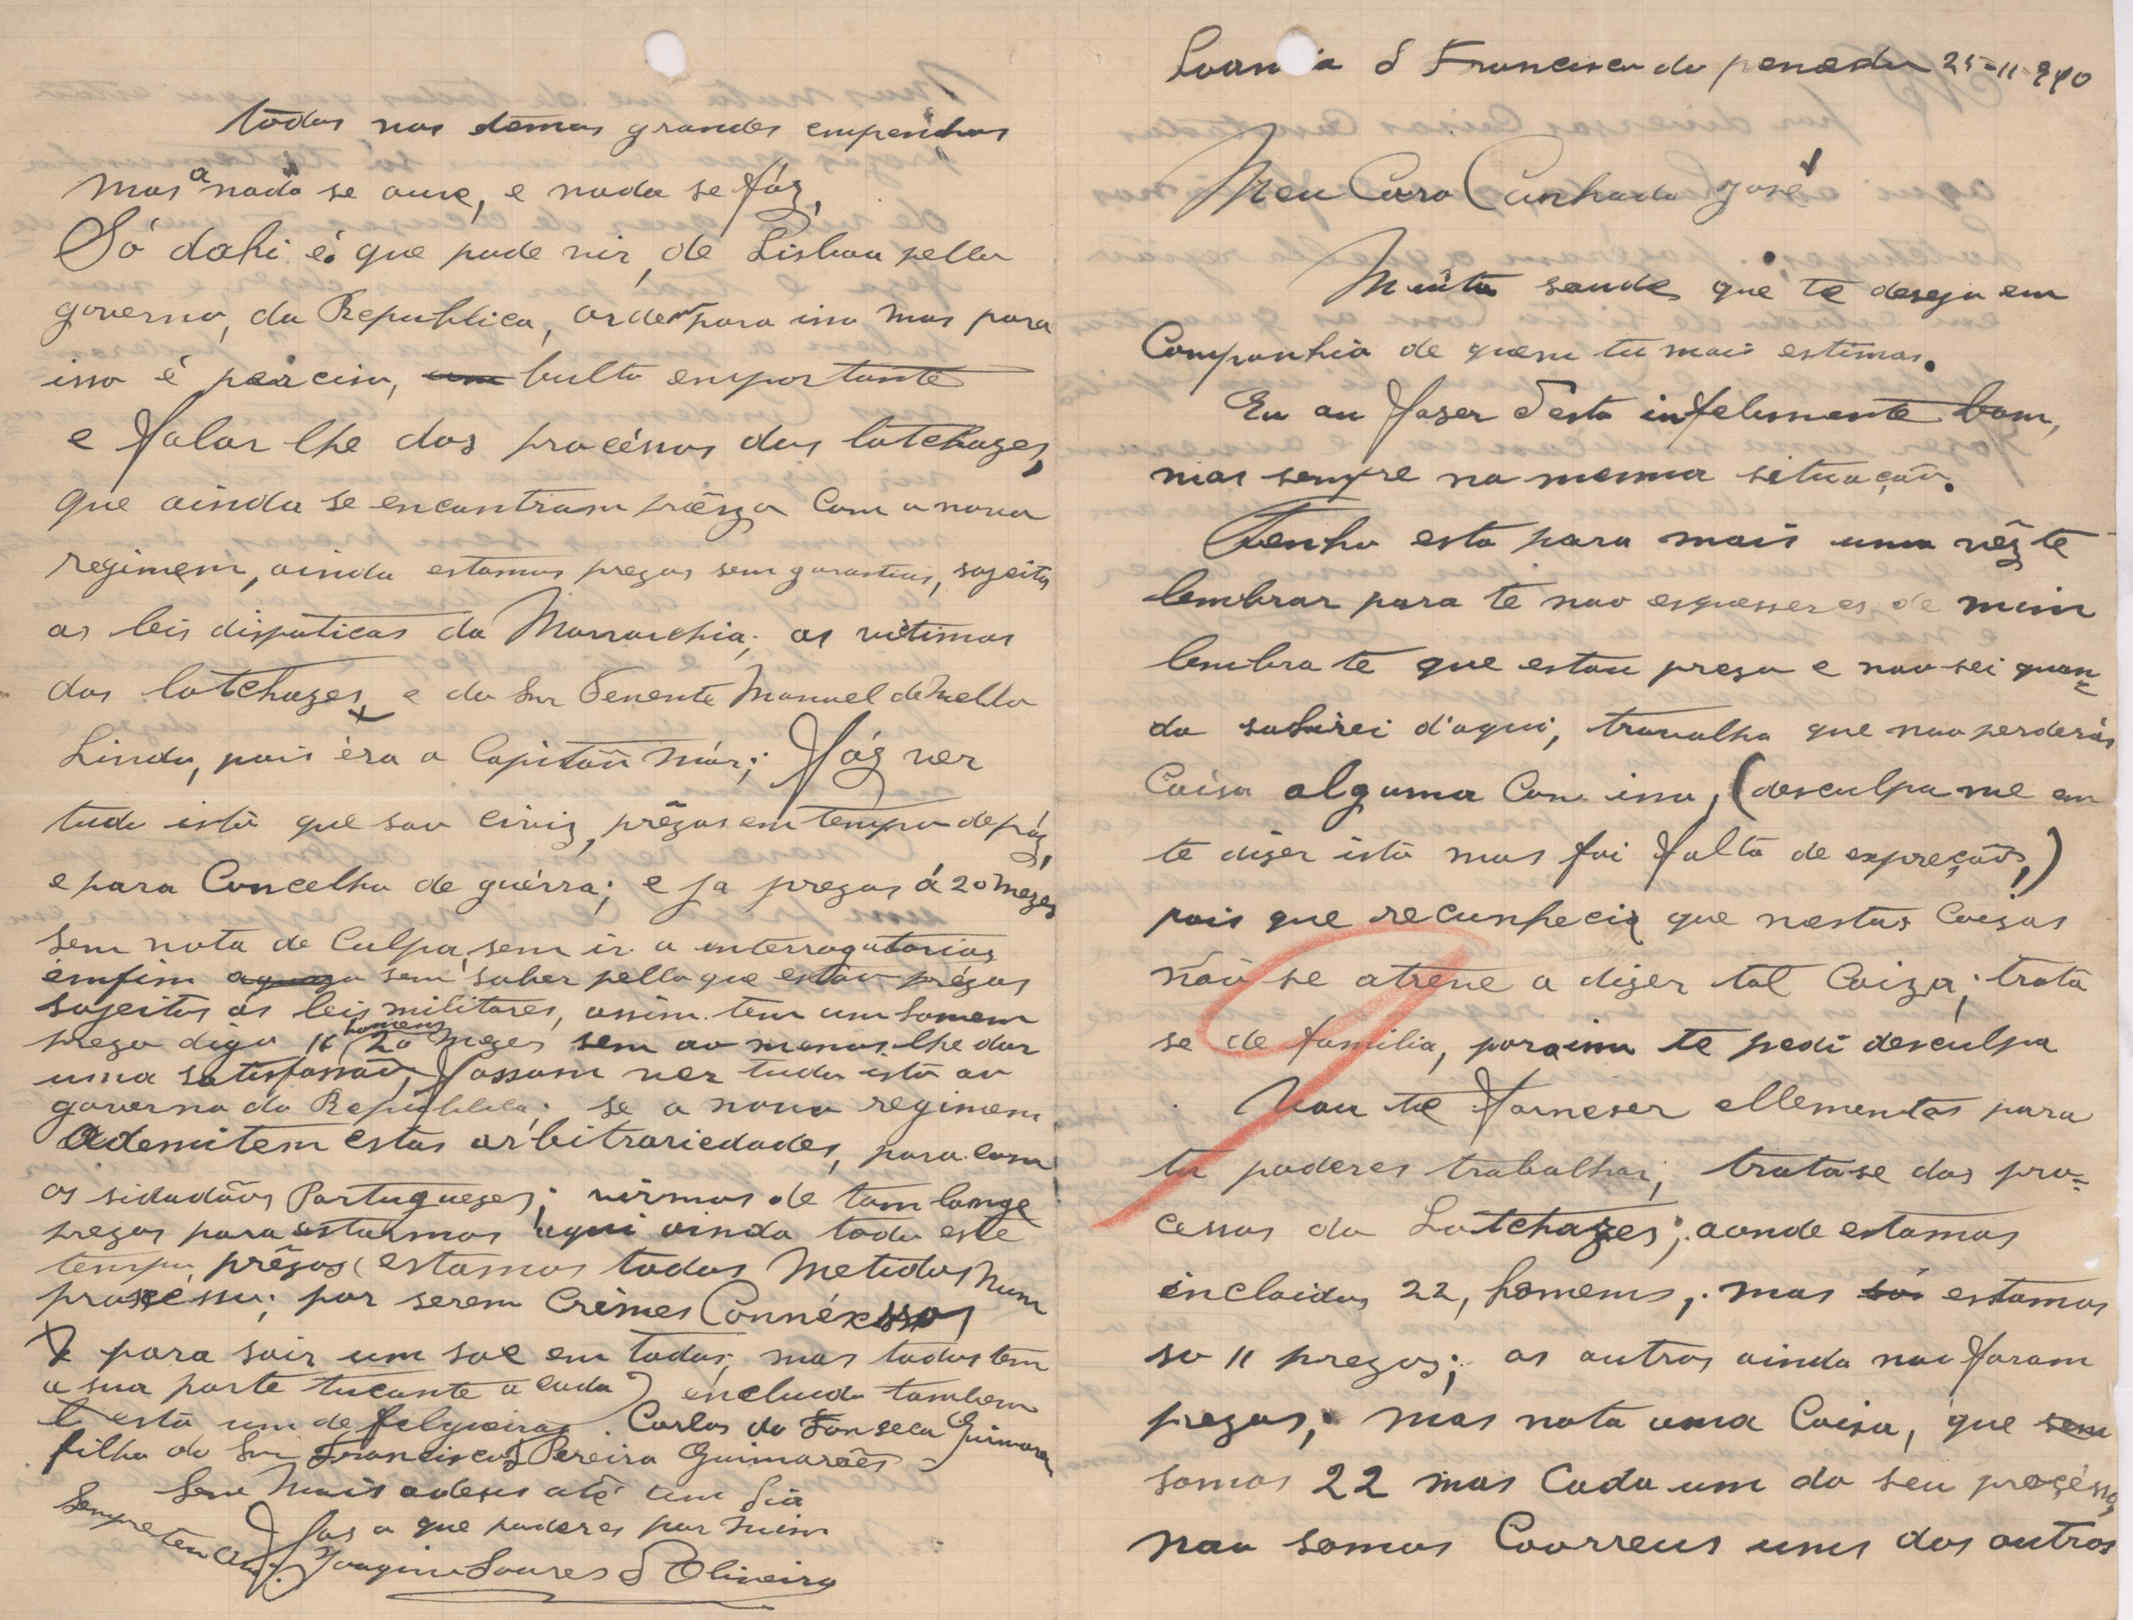 Loanda S Francisco do penedo 25-11-910
Meu Caro Cunhado José
Muita saude que te desejo em
Companhia de quem tu mais estimas.
Eu au faser desta infelismente bom,
mas sempre na mesma situação.
Tenho esta para mais uma vêz te
lembrar para te nao esquesseres de mim
lembra te que estou prezo e nao sei quan=
do sahirei d'aqui, travalha que nao perderás
Coisa alguma Con isso, (desculpa me em
te dizer istо mas foi falta de expreção,)
pois que recunheci que nestas Coisas
não se atreve a dizer tal Coiza; trata
se de familia, por isso te pedi desculpa
Vou te forneser ellementos para
tu poderes trabalhar; trata-se dos pro=
cessos do Lutchazes; aonde estamos
incluidos 22, homens; mas só estamos
so 11 prezos; os outros ainda nao foram
prezos; mas nota uma Coisa, que sem
somos 22 mas Cada um do seu procésso,
nao somos Coorreus uns dos outros
todos nos temos grandes empenhos
mas a nada se ouve, e nada se fáz,
Só dahi é que pode vir, de Lisboa pello
governo, da Republica, ordem para isso mas para
isso é perciso, um vulto emportante
e falar lhe dos procéssos dos lutchazes,
que ainda se encontram prêzos Com o novo
regimem, ainda estamos prezos sem garantias, sojeitos
as leis dispoticas da Monarchia; as victimas
dos lutchazes, e do Snr Tenente Manuel de Mello
Lindo, pois éra o Capitão Mór; Fáz ver
tudo isto que sao civis, prêzos em tempo de páz,
e para Concelho de guérra; e ja prezos á 20 mezes
sem nota de Culpa, sem ir a interrogatorios
emfim sem saber pello que estao prézos
sojeitos ás leis militares, assim tem um homem
prezo digo 11 homens 20 mezes sem ao menos lhe dar
uma satisfassão, fassam ver tudo isto ao
governo da Republica; se o novo regimem
Ademitem estas arbitrariedades, para com
os sidadãos Portuguezes; virmos de tam longe
prezos para estarmos aqui ainda todo este
tempo, prêzos (estamos todos Metidos num
procésso; por serem Crimes Connéxos
E para sair um sae em todos; mas todos tem
a sua parte tucante a cada) encluido tambem
lá está um de felgueiras Carlos da Fonseca Guimaraes
filho do Snr Francisco Pereira Guimarães
Sem mais adeus até um dia
Fas o que puderes por mim
Sempre teu
Joaquim Soares d Oliveira